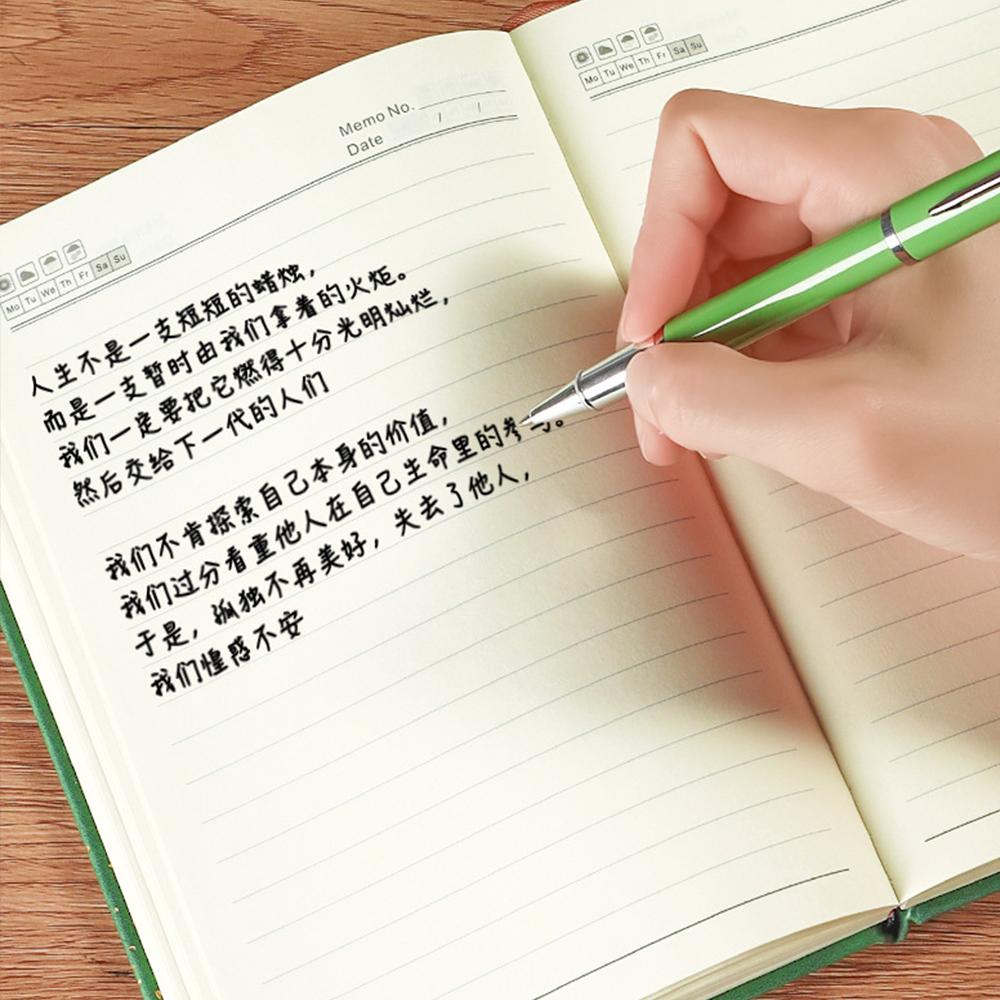 Memo No.
Date / /
Mo Tu We Th Fr Sa Su
人生不是一支短短的蜡烛，
而是一支暂时由我们拿着的火炬。
我们一定要把它燃得十分光明灿烂，
然后交给下一代的人们
我们不肯探索自己本身的价值，
我们过分看重他人在自己生命里的参与。
于是，孤独不再美好，失去了他人，
我们惶惑不安
Mo Tu We Th Fr Sa Su